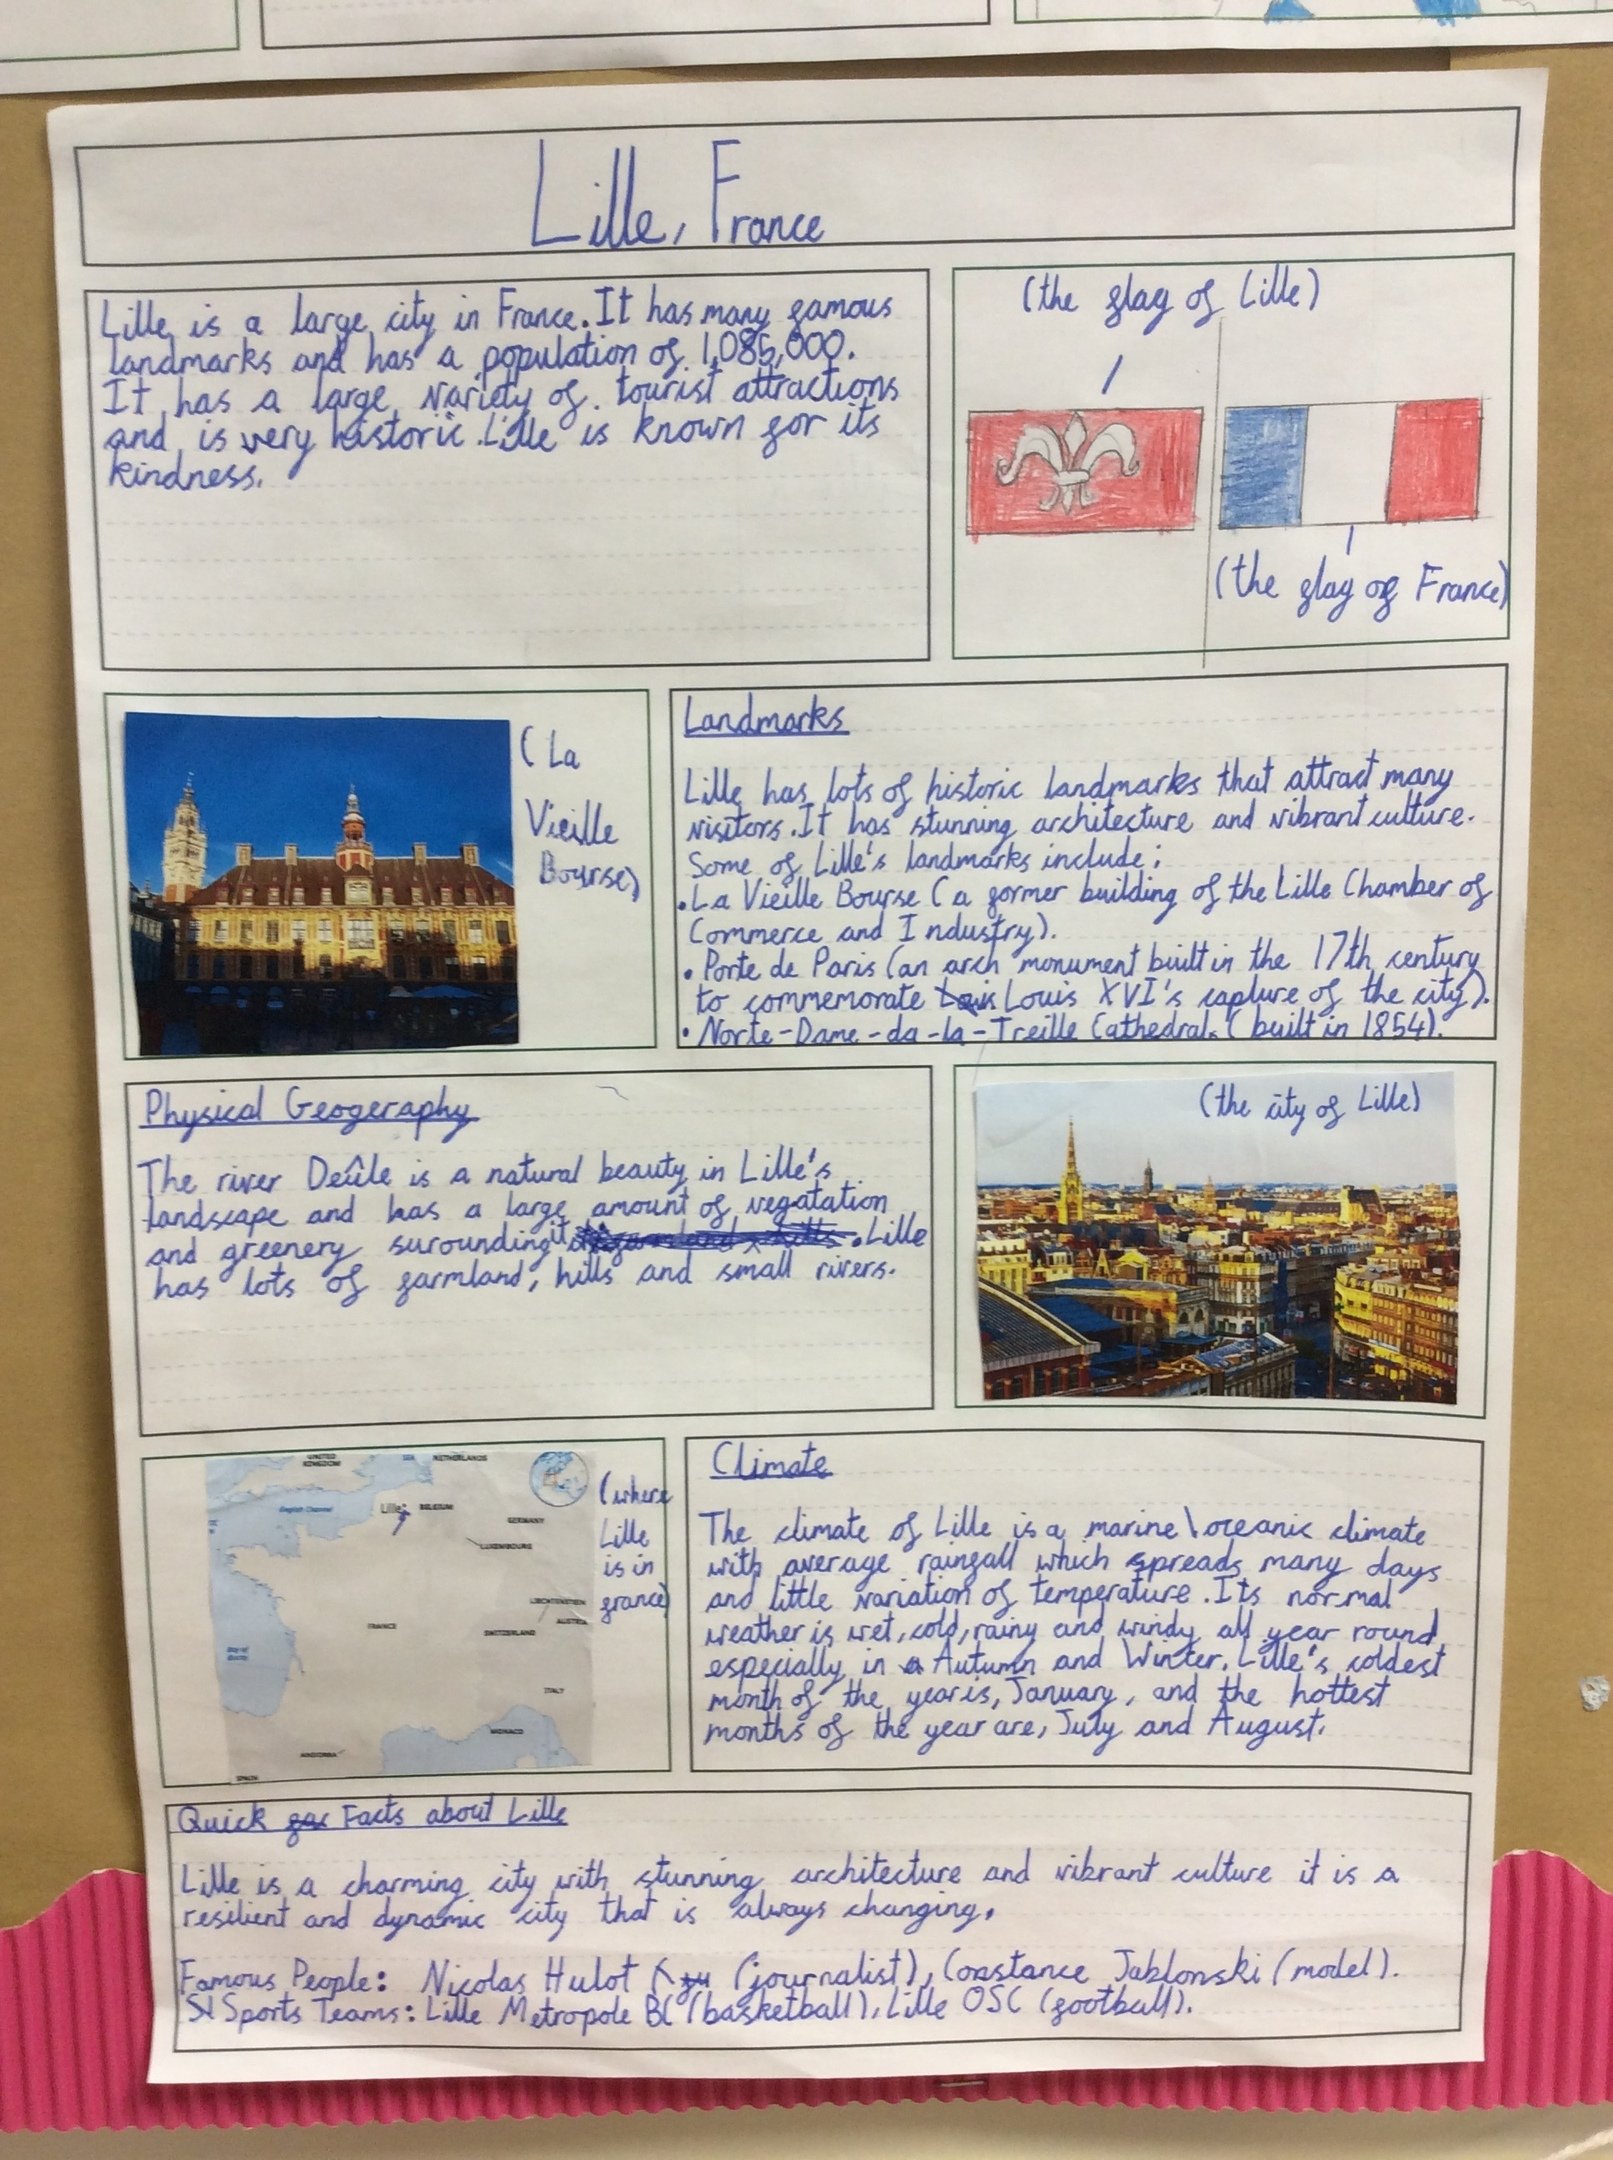 Lille, France
Lille is a large city in France. It has many famous
landmarks and has a population of 1,085,000.
It has a large variety of tourist attractions
and is very historic. Lille is known for its
kindness.
(the flag of Lille)
(the flag of France)
(La
Vieille
Bourse)
Landmarks
Lille has lots of historic landmarks that attract many
visitors. It has stunning architecture and vibrant culture.
Some of Lille's landmarks include:
• La Vieille Bourse (a former building of the Lille Chamber of
Commerce and Industry).
• Porte de Paris (an arch monument built in the 17th century
to commemorate Louis XVI's capture of the city).
• Norte-Dame-da-la-Treille Cathedral. (built in 1854).
Physical Geogeraphy
The river Deûle is a natural beauty in Lille's
landscape and has a large amount of vegatation
and greenery surounding it. Lille
has lots of farmland, hills and small rivers.
(the city of Lille)
UNITED
KINGDOM
NETHERLANDS
English Channel
Lille
BELGIUM
GERMANY
LUXEMBOURG
LIECHTENSTEIN
AUSTRIA
FRANCE
SWITZERLAND
Bay of
Biscay
ITALY
MONACO
ANDORRA
SPAIN
(where
Lille
is in
france)
Climate
The climate of Lille is a marine\oceanic climate
with average rainfall which spreads many days
and little variation of temperature. Its normal
weather is wet, cold, rainy and windy all year round
especially in Autumn and Winter. Lille's coldest
month of the year is, January, and the hottest
months of the year are, July and August.
Quick Facts about Lille
Lille is a charming city with stunning architecture and vibrant culture it is a
resilient and dynamic city that is always changing.
Famous People: Nicolas Hulot (journalist), Constance Jablonski (model).
Sports Teams: Lille Metropole BC (basketball), Lille OSC (football).